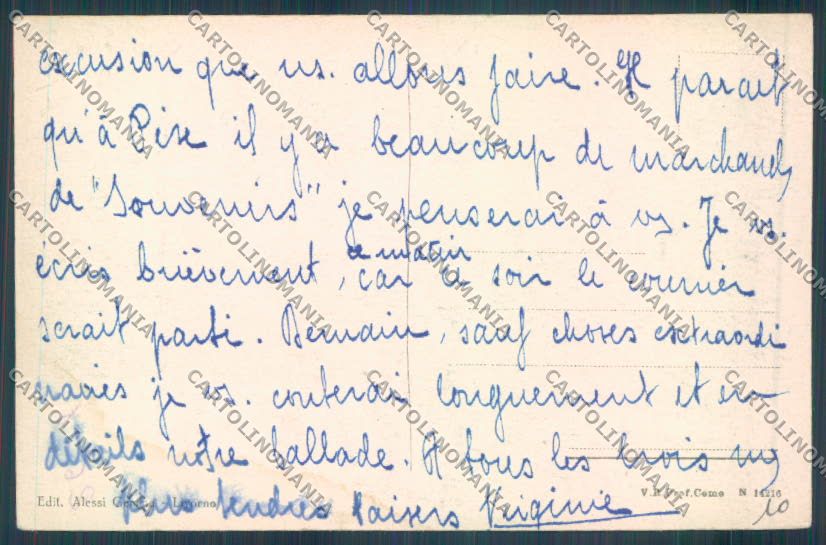 excursion que ns. allons faire. Il parait
qu'à Pise il y a beaucoup de marchands
de "Souvenirs" je penserai à vs. Je vs.
écris brièvement, ce matin car ce soir le courrier
serait parti. Demain, sauf choses extraordi
naires je vs. conterai longuement et en
détails notre ballade. A tous les trois mes
plus tendres baisers Virginie
Edit. Alessi Livorno
V.B. Prof. Como N 14216
10
CARTOLINOMANIA